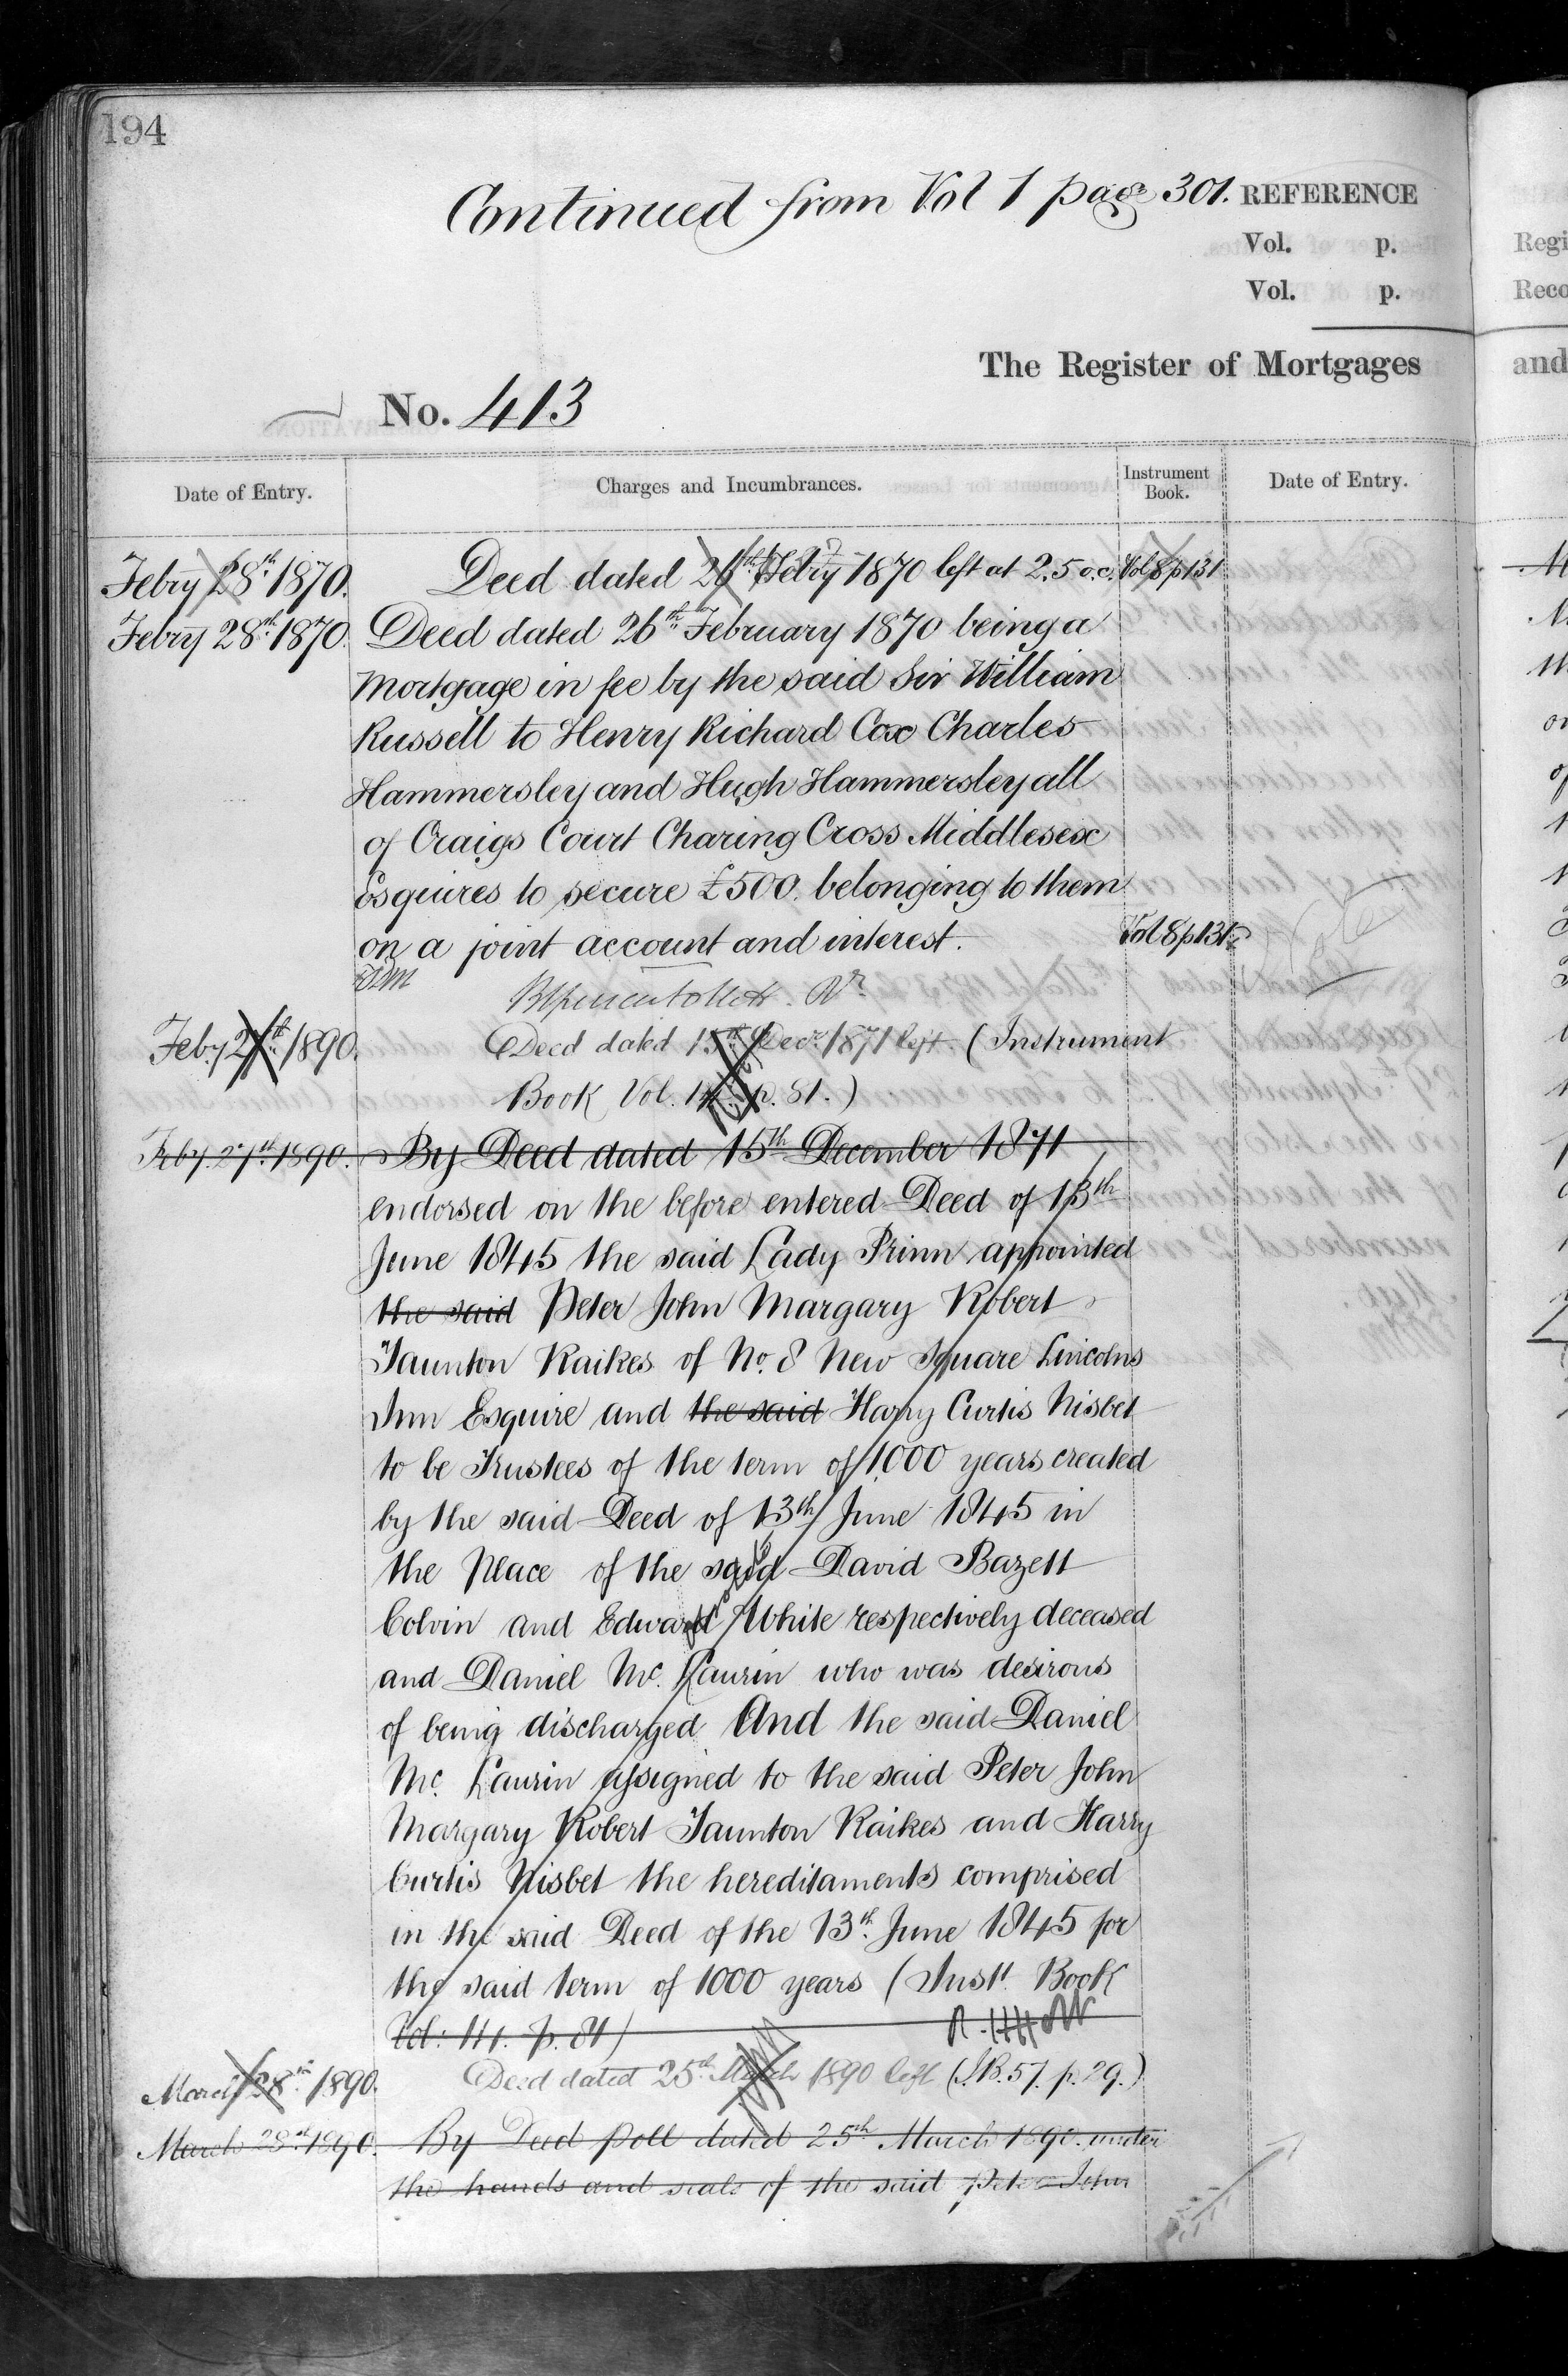 194
Continued from Vol 1 page 301.
REFERENCE
Vol. p.
Vol. p.
The Register of Mortgages
No. 413
Date of Entry. Charges and Incumbrances. Instrument Book. Date of Entry.
Febry 28th 1870. Deed dated 26th Febry 1870 left at 2.5 o.c. Vol 8 p 131
Febry 28th 1870. Deed dated 26th February 1870 being a
Mortgage in fee by the said Sir William
Russell to Henry Richard Cox Charles
Hammersley and Hugh Hammersley all
of Craigs Court Charing Cross Middlesex
Esquires to secure £500. belonging to them
on a joint account and interest. Vol 8 p 131
Feby 27th 1890. Deed dated 15th Decr 1871 left. (Instrument
Book Vol. 14. p. 81.)
Feby. 27th 1890. By Deed dated 15th December 1871
endorsed on the before entered Deed of 13th
June 1845 the said Lady Prinn appointed
the said Peter John Margary Robert
Taunton Raikes of No. 8 New Square Lincolns
Inn Esquire and the said Harry Curtis Nisbet
to be Trustees of the term of 1000 years created
by the said Deed of 13th June 1845 in
the Place of the said David Bazett
Colvin and Edward White respectively deceased
and Daniel Mc. Laurin who was desirous
of being discharged And the said Daniel
Mc. Laurin assigned to the said Peter John
Margary Robert Taunton Raikes and Harry
Curtis Nisbet the hereditaments comprised
in the said Deed of the 13th. June 1845 for
the said term of 1000 years (Inst! Book
Vol: 14. p. 81)
March 28th 1890. Deed dated 25th March 1890 left (I.B. 57. p. 29.)
March 28th 1890. By Deed poll dated 25th March 1890. under
the hands and seals of the said Peter John
Regi
Reco
and